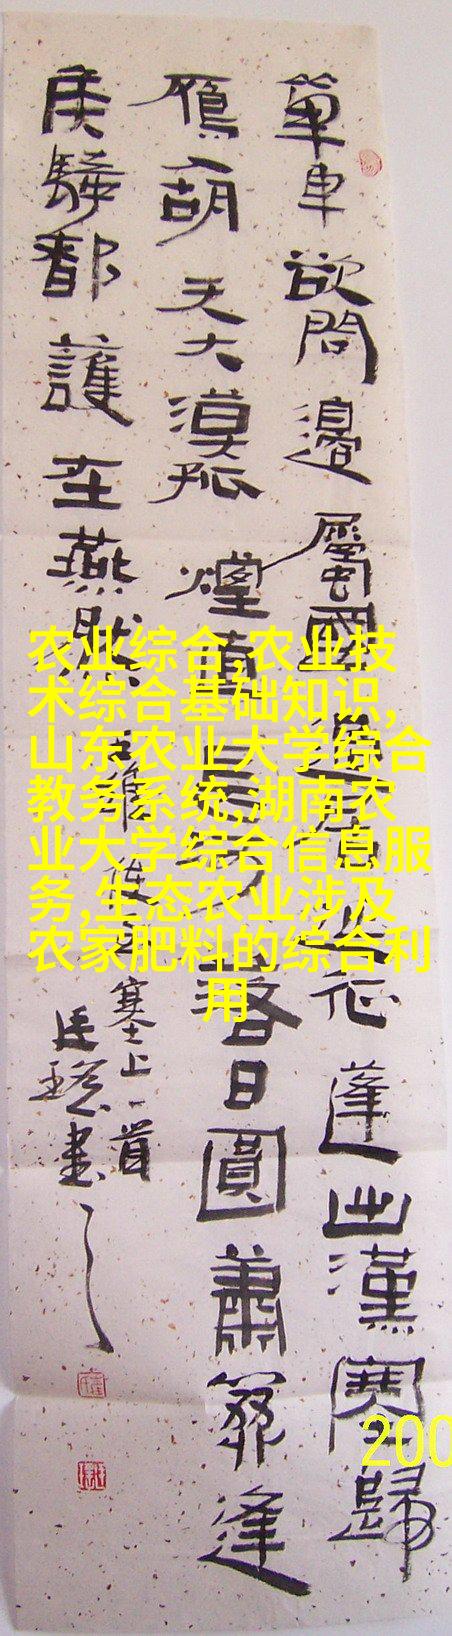 單車欲問邊屬國過居延征蓬出漢塞歸
雁入胡天大漠孤煙直長河落日圓蕭關逢
候騎都護在燕然王維使至
塞上一首
書
农业综合,农业技
术综合基础知识,
山东农业大学综合
教务系统,湖南农
业大学综合信息服
务,生态农业涉及
农家肥料的综合利
用
200